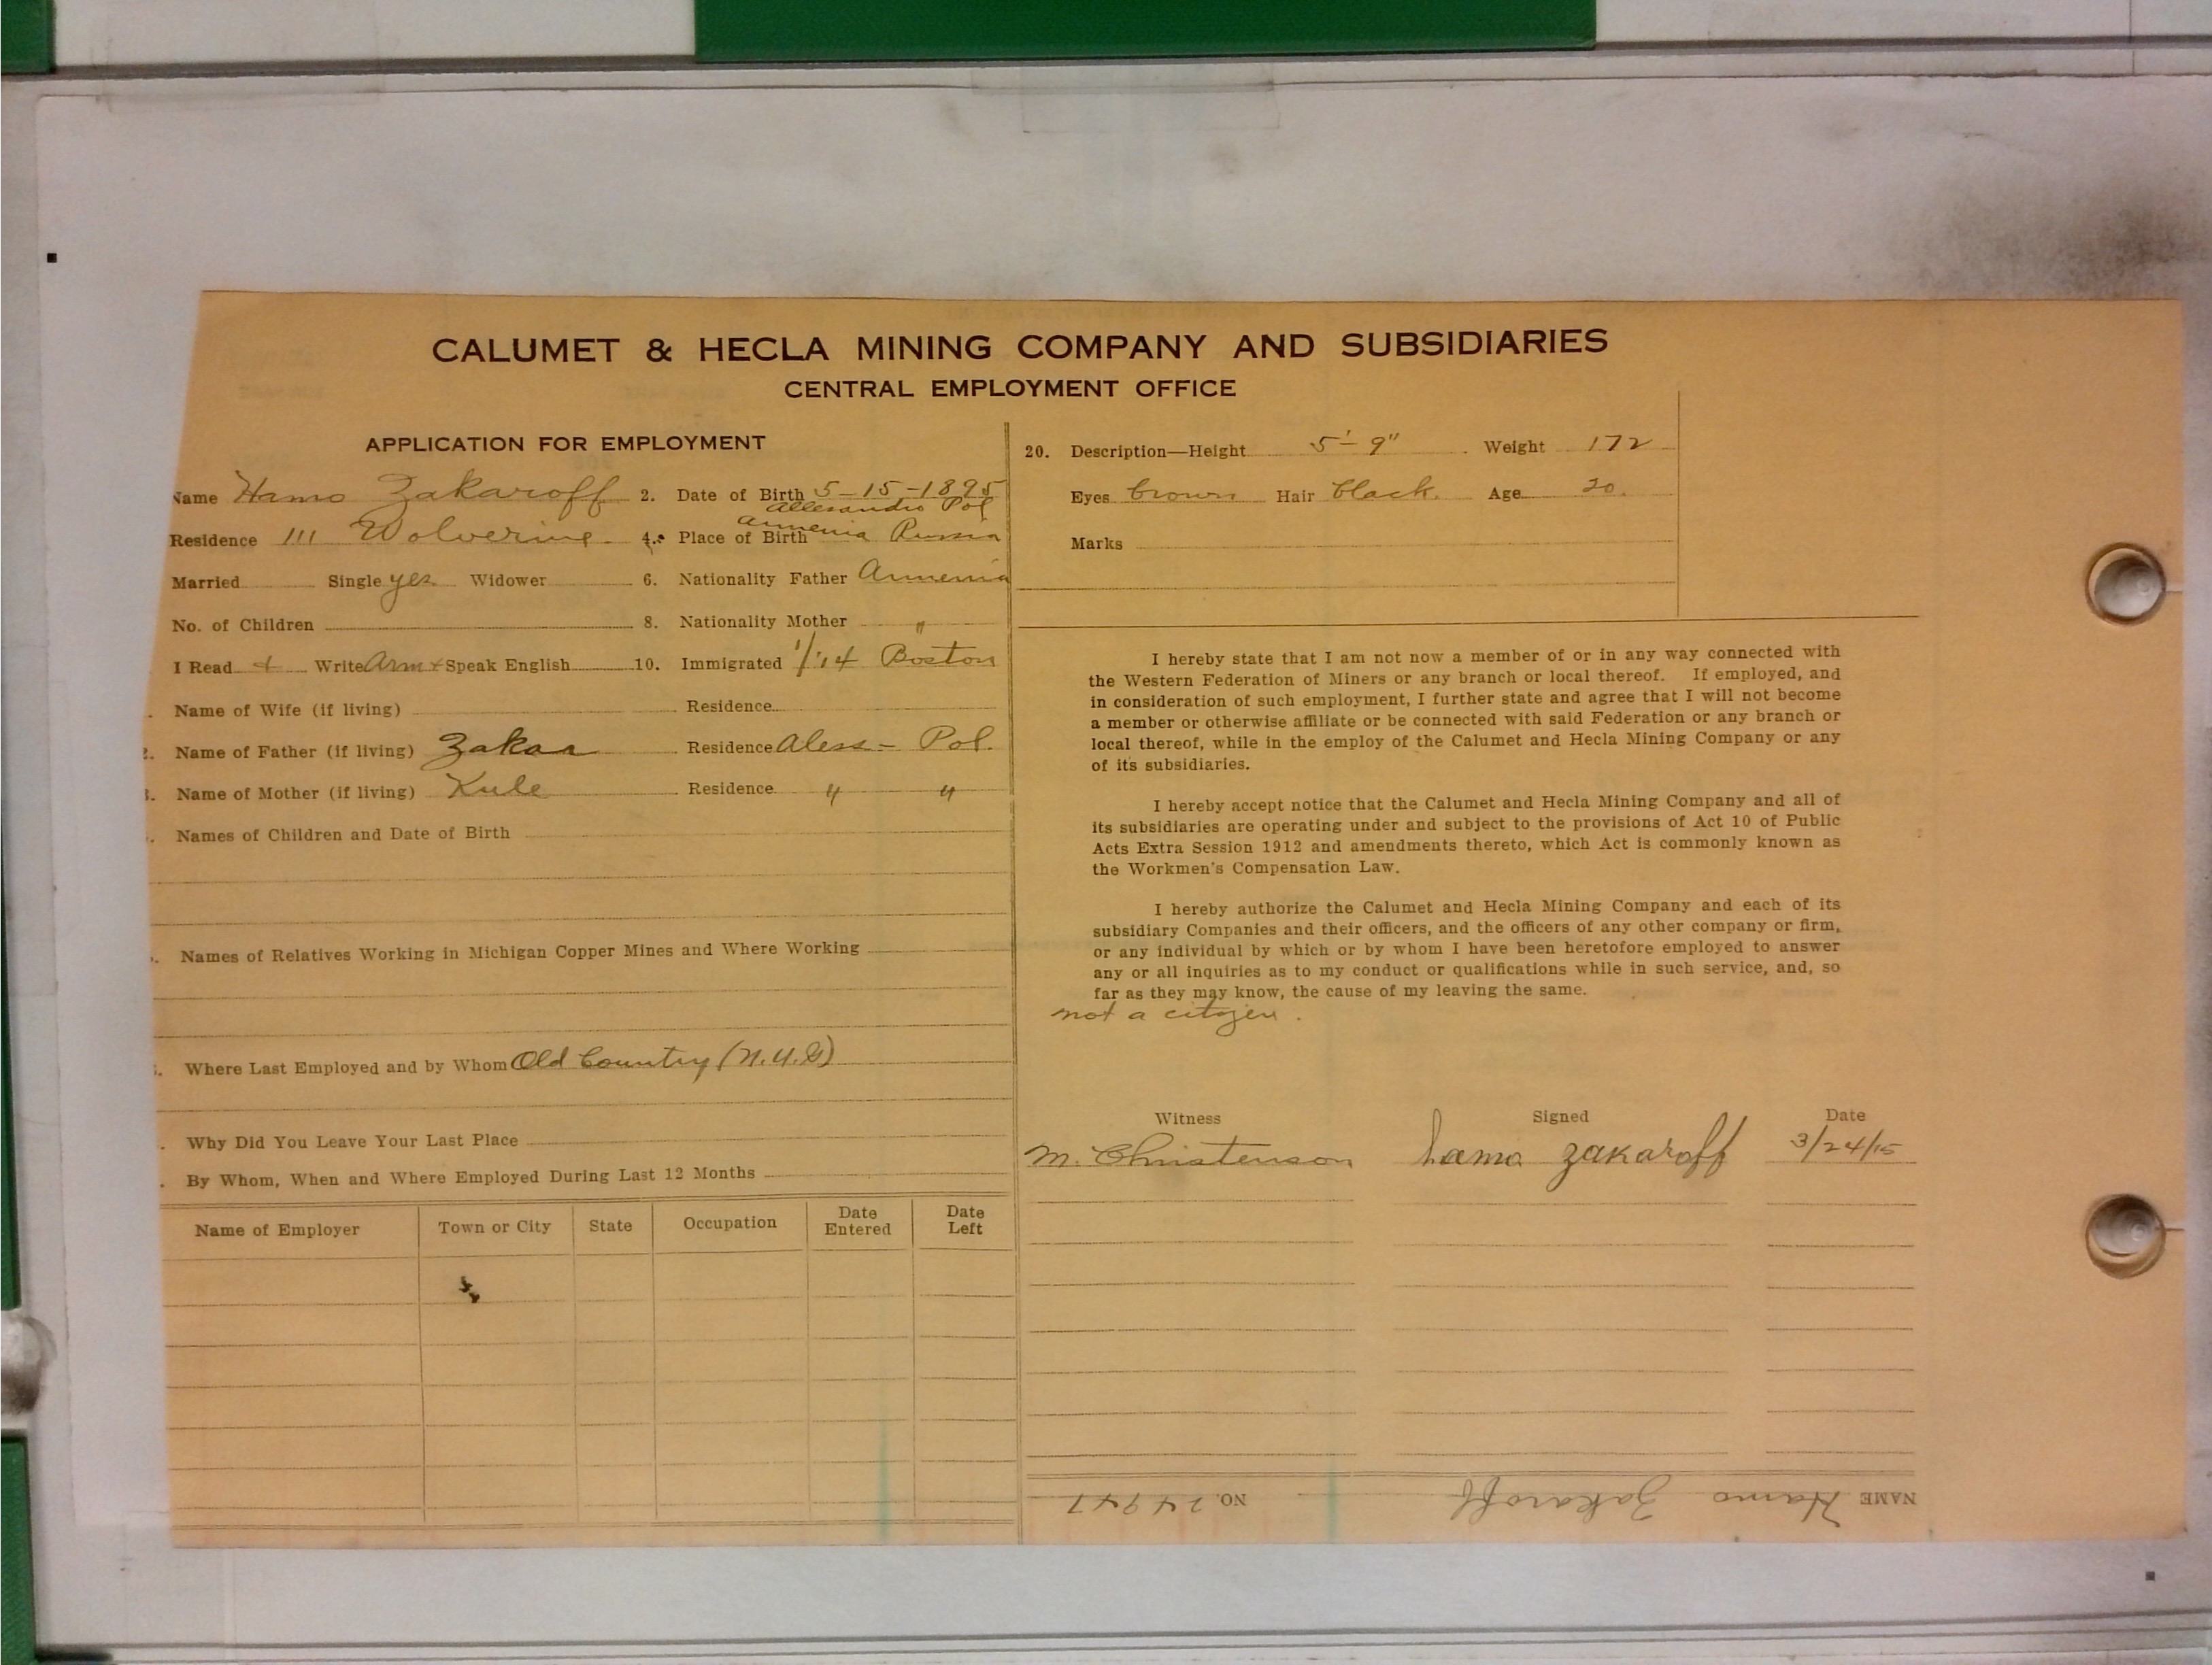 CALUMET & HECLA MINING COMPANY AND SUBSIDIARIES
CENTRAL EMPLOYMENT OFFICE
APPLICATION FOR EMPLOYMENT
Name Hamo Zakaroff 2. Date of Birth 5-15-1895
Allesandro Pol
Residence 111 Wolverine 4. Place of Birth Armenia Russia
Married Single yes Widower 6. Nationality Father Armenia
No. of Children 8. Nationality Mother "
I Read + Write Arm + Speak English 10. Immigrated 1/'14 Boston
Name of Wife (if living) Residence
Name of Father (if living) Zakaa Residence Aless- Pol.
Name of Mother (if living) Kule Residence " "
Names of Children and Date of Birth
Names of Relatives Working in Michigan Copper Mines and Where Working
Where Last Employed and by Whom Old Country (N.U.G)
Why Did You Leave Your Last Place
By Whom, When and Where Employed During Last 12 Months
Name of Employer Town or City State Occupation Date Entered Date Left
20. Description—Height 5'-9" Weight 172
Eyes brown Hair black. Age 20.
Marks
I hereby state that I am not now a member of or in any way connected with
the Western Federation of Miners or any branch or local thereof. If employed, and
in consideration of such employment, I further state and agree that I will not become
a member or otherwise affiliate or be connected with said Federation or any branch or
local thereof, while in the employ of the Calumet and Hecla Mining Company or any
of its subsidiaries.
I hereby accept notice that the Calumet and Hecla Mining Company and all of
its subsidiaries are operating under and subject to the provisions of Act 10 of Public
Acts Extra Session 1912 and amendments thereto, which Act is commonly known as
the Workmen's Compensation Law.
I hereby authorize the Calumet and Hecla Mining Company and each of its
subsidiary Companies and their officers, and the officers of any other company or firm,
or any individual by which or by whom I have been heretofore employed to answer
any or all inquiries as to my conduct or qualifications while in such service, and, so
far as they may know, the cause of my leaving the same.
not a citizen.
Witness Signed Date
M. Christenson hamo zakaroff 3/24/15
NAME Hamo Zakaroff NO. 24947